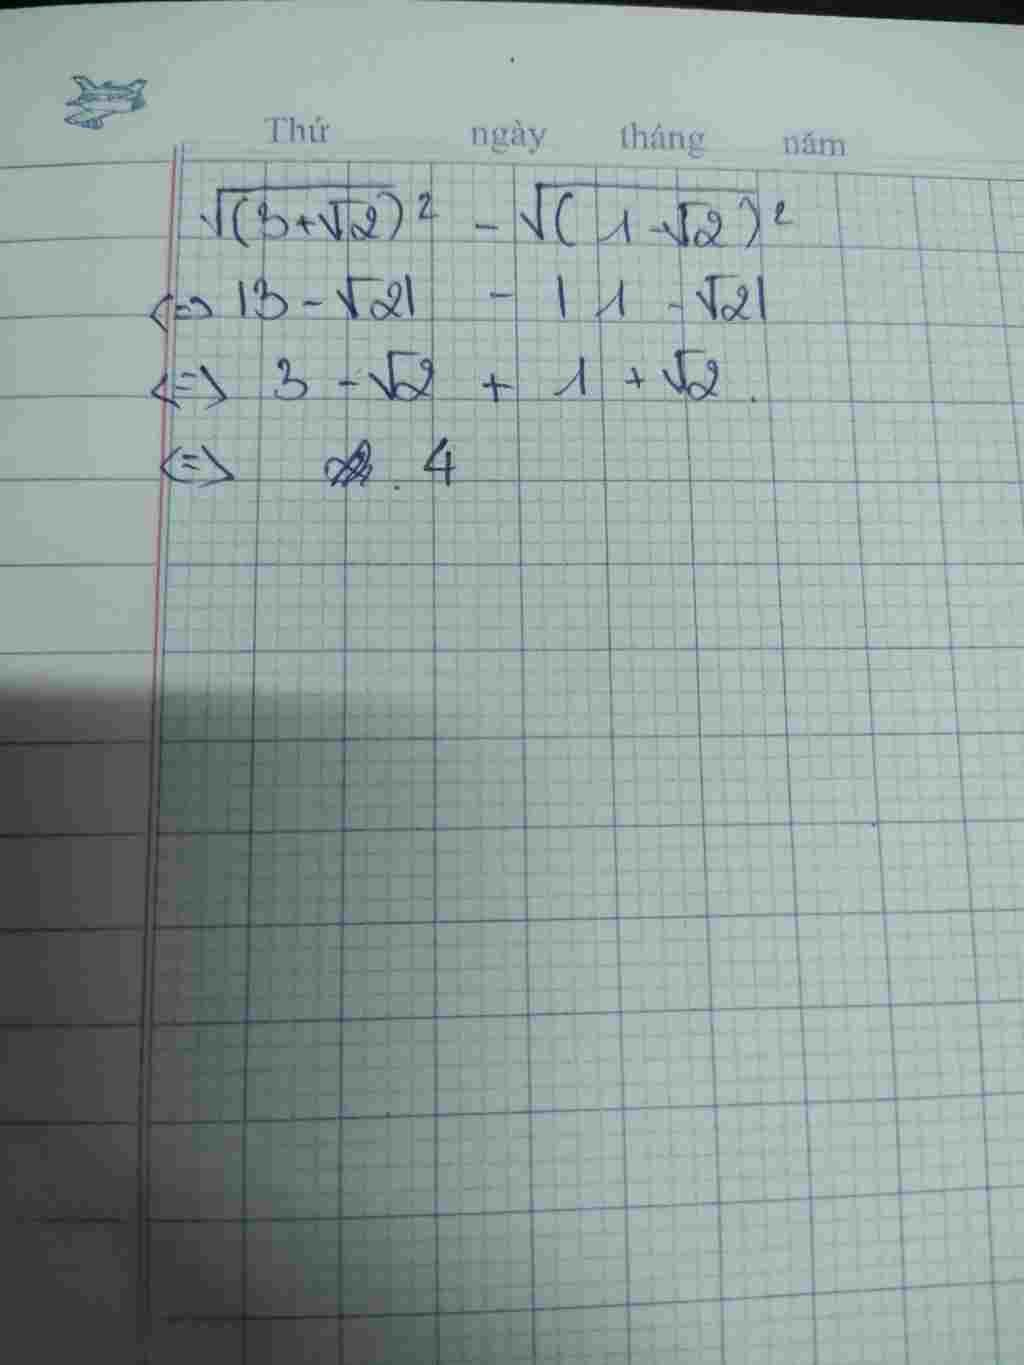 Thứ ngày tháng năm
√(3+√2)² - √(1-√2)²
<=> |3-√2| - |1-√2|
<=> 3-√2 + 1 + √2.
<=> . 4